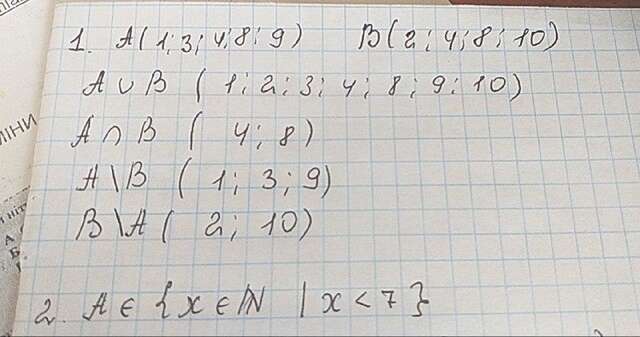 1. A(1; 3; 4; 8; 9) B(2; 4; 8; 10)
A ∪ B (1; 2; 3; 4; 8; 9; 10)
A ∩ B (4; 8)
A \ B (1; 3; 9)
B \ A (2; 10)
2. A ∈ {x ∈ ℕ | x < 7}